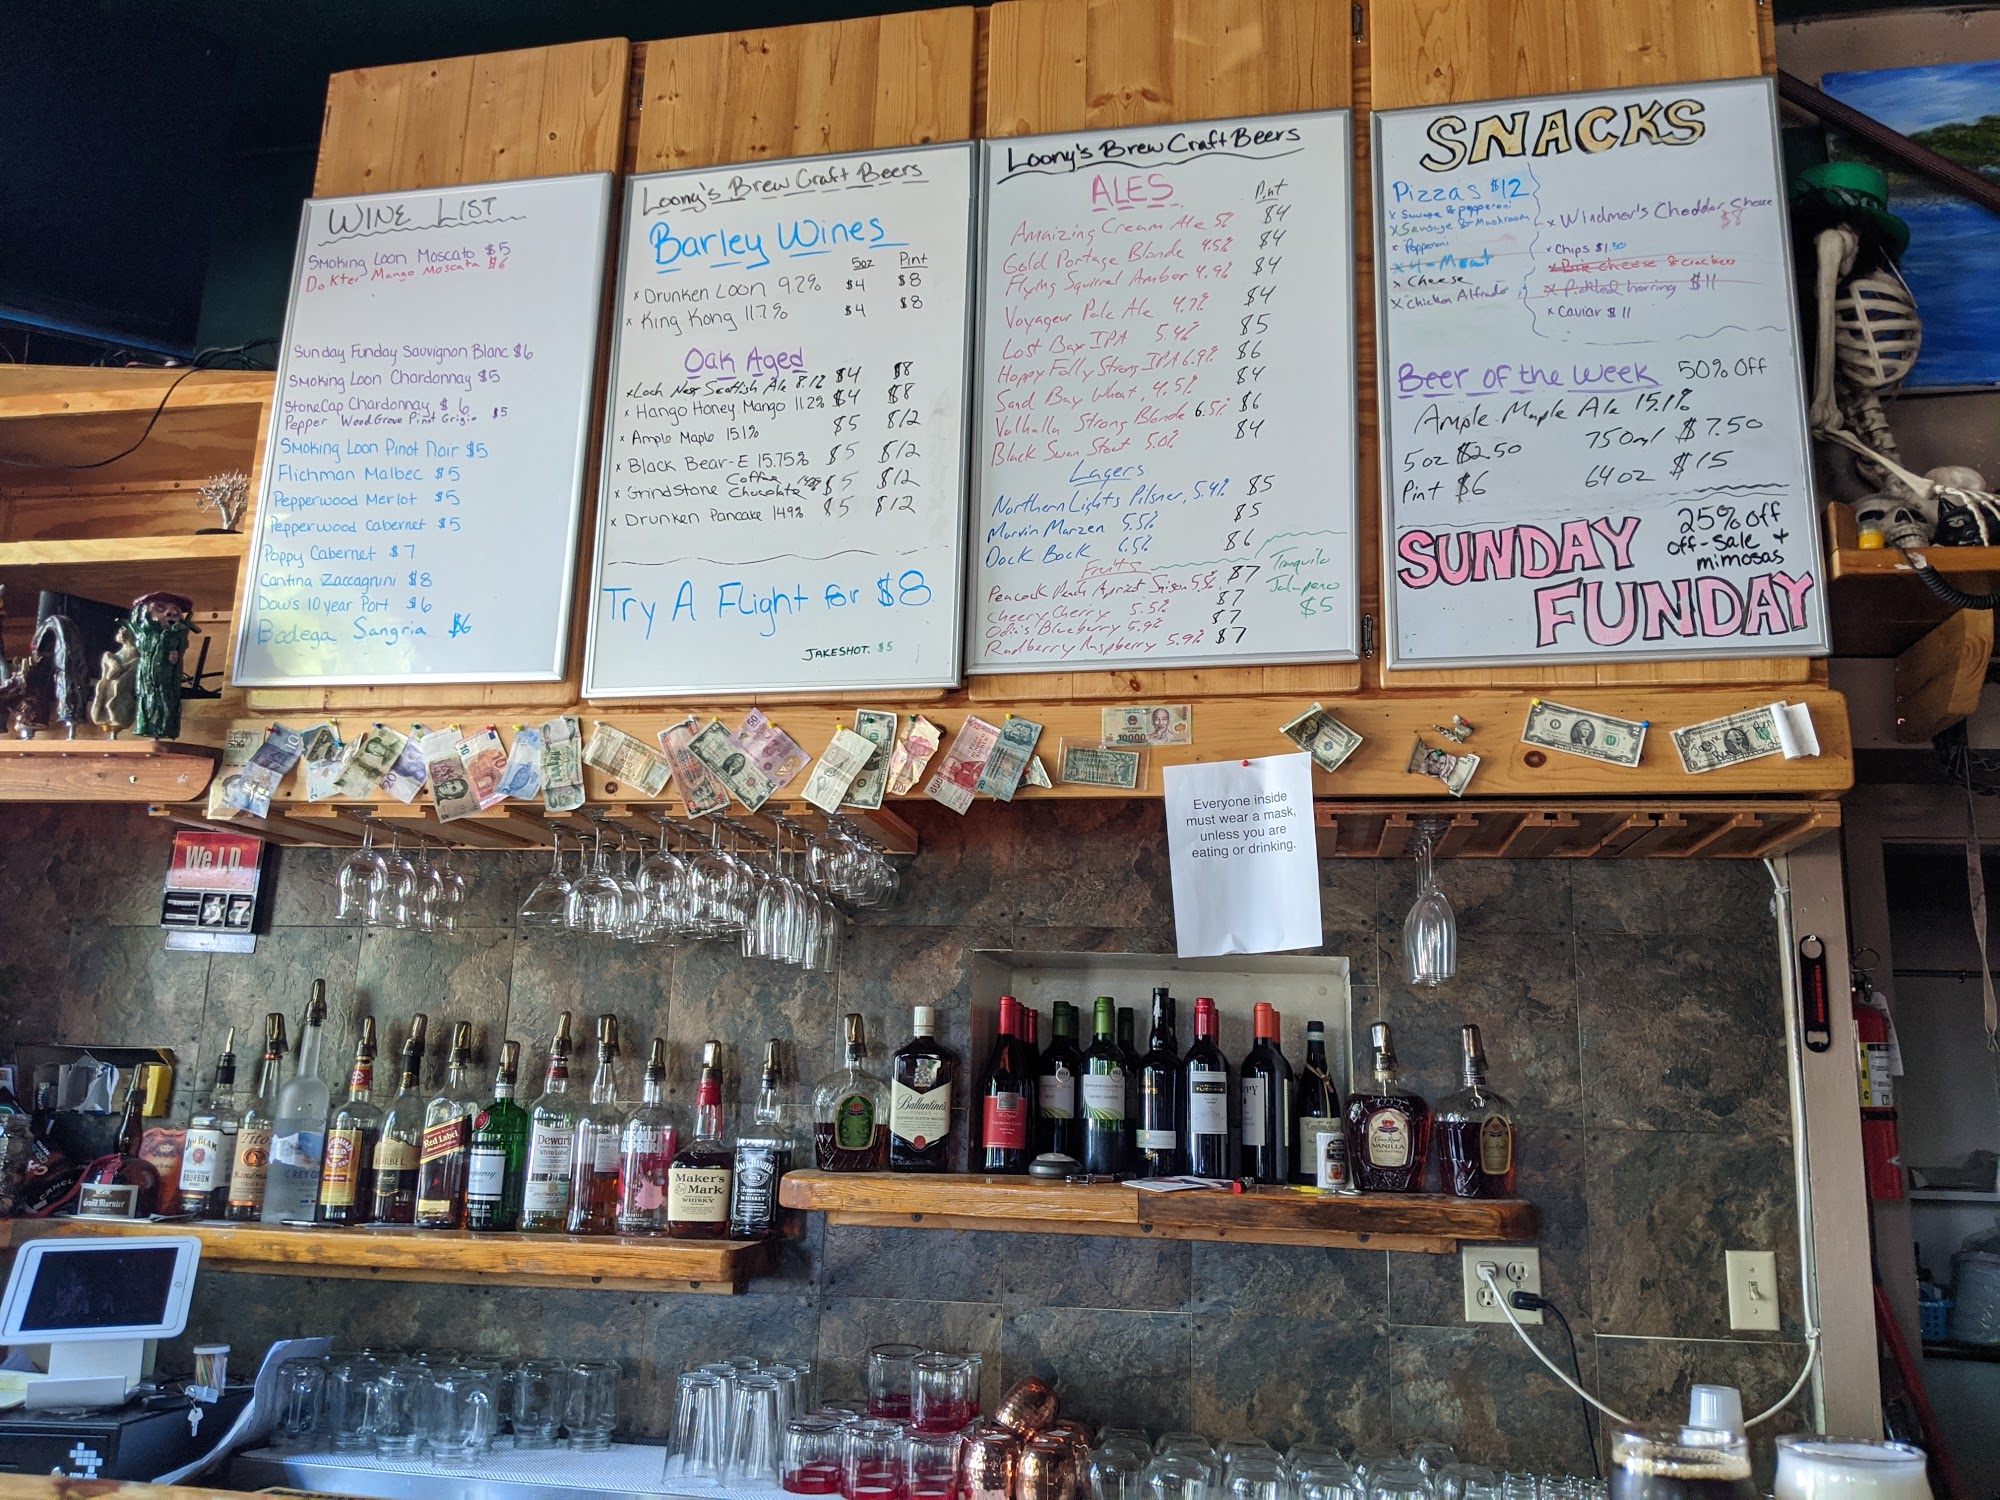 WINE LIST
Smoking Loon Moscato $5
Dokter Mango Moscata $6
Sunday Funday Sauvignon Blanc $6
Smoking Loon Chardonnay $5
StoneCap Chardonnay $6
Pepper Wood Grove Pinot Grigio $5
Smoking Loon Pinot Noir $5
Flichman Malbec $5
Pepperwood Merlot $5
Pepperwood Cabernet $5
Poppy Cabernet $7
Cantina Zaccagnini $8
Dow's 10 year Port $6
Badega Sangria $6
Loony's Brew Craft Beers
Barley Wines
5oz Pint
x Drunken Loon 9.2% $4 $8
x King Kong 11.7% $4 $8
Oak Aged
x Loch Ness Scottish Ale 8.1% $4 $8
x Hango Honey Mango 11.2% $4 $8
x Ample Maple 15.1% $5 $12
x Black Bear-E 15.75% $5 $12
x Grindstone Coffee Chocolate $5 $12
x Drunken Pancake 14.9% $5 $12
Try A Flight for $8
JAKESHOT. $5
Loony's Brew Craft Beers
ALES Pint
Amaizing Cream Ale 5% $4
Gold Portage Blonde 4.5% $4
Flying Squirrel Amber 4.9% $4
Voyageur Pale Ale 4.7% $4
Lost Bay IPA 5.4% $5
Hoppy Folly Strong IPA 6.9% $6
Sand Bay Wheat, 4.5% $4
Valhalla Strong Blonde 6.5% $6
Black Swan Stout 5.0% $4
Lagers
Northern Lights Pilsner, 5.4% $5
Marvin Marzen 5.5% $5
Dock Bock 6.5% $6
Fruits
Peacock Peach Apricot Saison 5.5% $7
Cheery Cherry 5.5% $7
Odin's Blueberry 5.9% $7
Radberry Raspberry 5.9% $7
Tranquilo
Jalapeno
$5
SNACKS
Pizzas $12
x Sausage & pepperoni
x Sausage & Mushroom
x Pepperoni
x 4-Meat
x Cheese
x Chicken Alfredo
x Windmer's Cheddar Cheese
$8
x Chips $1.50
x Brie cheese & crackers
x Pickled herring $11
x Caviar $11
Beer of the Week 50% Off
Ample Maple Ale 15.1%
5 oz $2.50 750ml $7.50
Pint $6 64oz $15
SUNDAY
FUNDAY
25% off
off-sale +
mimosas
Everyone inside
must wear a mask,
unless you are
eating or drinking.
We I.D.
10000
JIM BEAM
BOURBON
Tito's
GREY GOOSE
KORBEL
Red Label
Dewar's
White Label
Maker's
Mark
WHISKY
JACK DANIEL'S
Tennessee
WHISKEY
Ballantine's
FINEST
Grand Marnier
CAMEL
Crown Royal
VANILLA